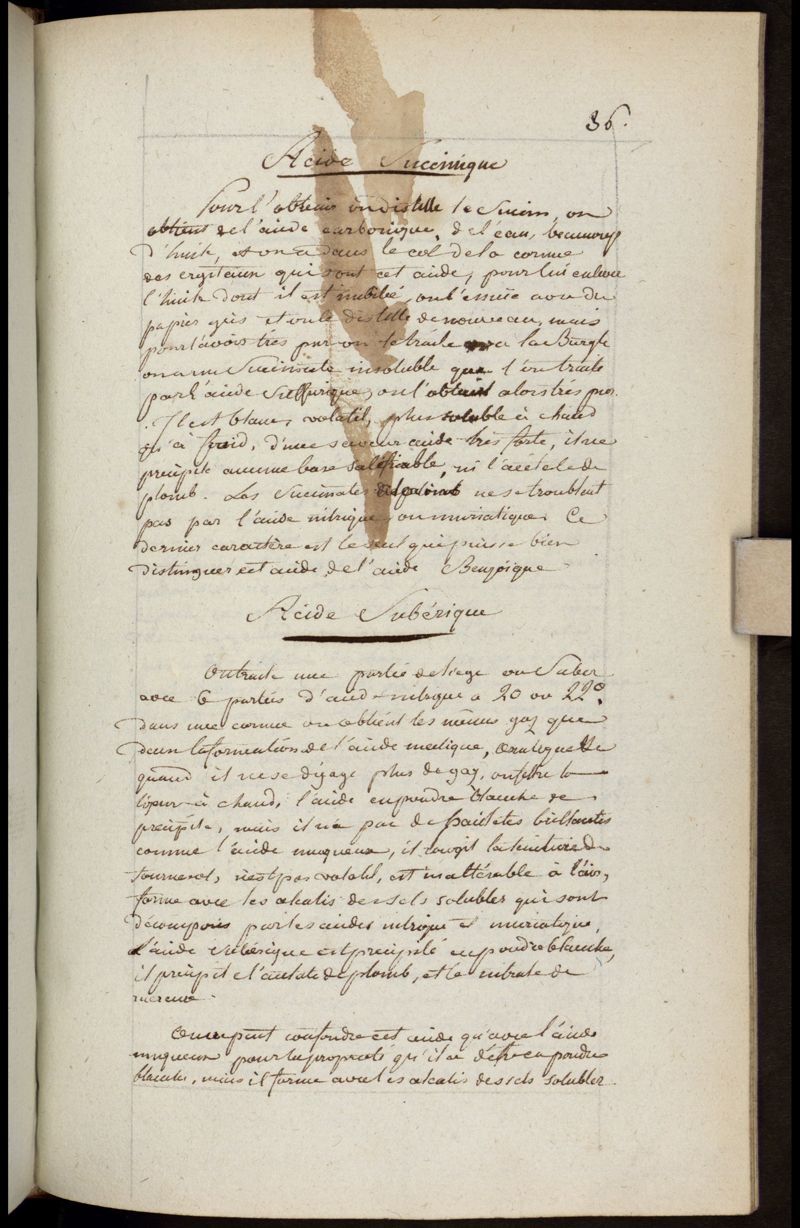 36.
Acide Succinique
Pour l'obtenir on distille le Succin, on
obtient de l'acide carbonique, de l'eau, beaucoup
d'huile, et on a dans le col de la cornue
des crystaux qui sont cet acide, pour lui enlever
l'huile dont il est imbibé, on l'essuie avec du
papier gris et on le distille de nouveau, mais
pour l'avoir très pur on le traite par la Baryte
on a un Succinate insoluble que l'on traite
par l'acide Sulfurique, on l'obtient alors très pur.
Il est blanc, volatil, plus soluble à chaud
qu'à froid, d'une saveur acide très forte, il ne
précipite aucune base salifiable, ni l'acétate de
plomb. Les Succinates ne se troublent
pas par l'acide nitrique, ou muriatique. Ce
dernier caractère est le seul qui puisse bien
distinguer cet acide de l'acide Benzoïque
Acide Subérique
On traite une partie de liège ou Suber
avec 6 parties d'acide nitrique a 20 ou 22°.
dans une cornue on obtient les mêmes gaz que
dans la formation de l'acide
quand il ne se dégage plus de gaz, on filtre la
liqueur à chaud, l'acide en poudre blanche se
précipite, mais il n'a pas de paillettes brillantes
comme l'acide muqueux, il rougit la teinture de
tournesol, n'est pas volatil, est inaltérable à l'air,
forme avec les alcalis des sels solubles qui sont
décomposés par les acides nitrique et muriatique,
l'acide subérique est précipité en poudre blanche,
il précipite l'acétate de plomb, et le nitrate de
mercure.
On ne peut confondre cet acide qu'avec l'acide
muqueux pour la propriété qu'il a d'être en poudre
blanche, mais il forme avec les alcalis des sels solubles.